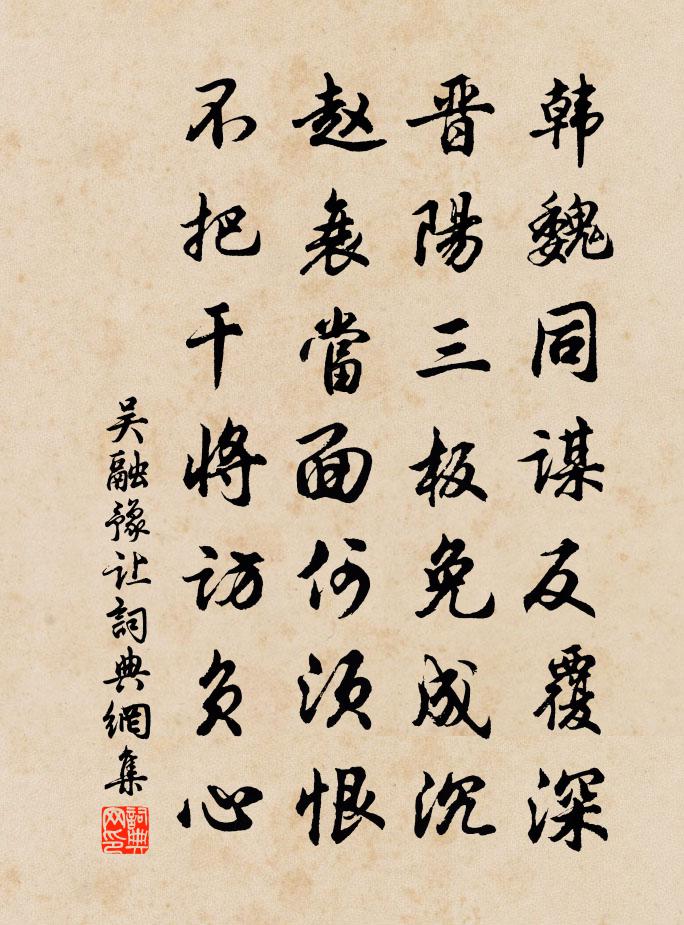 韩魏同谋反覆深
晋陽三板免成沉
赵衰當面何须恨
不把干将访负心
吴融豫让詞典網集
詞典网印